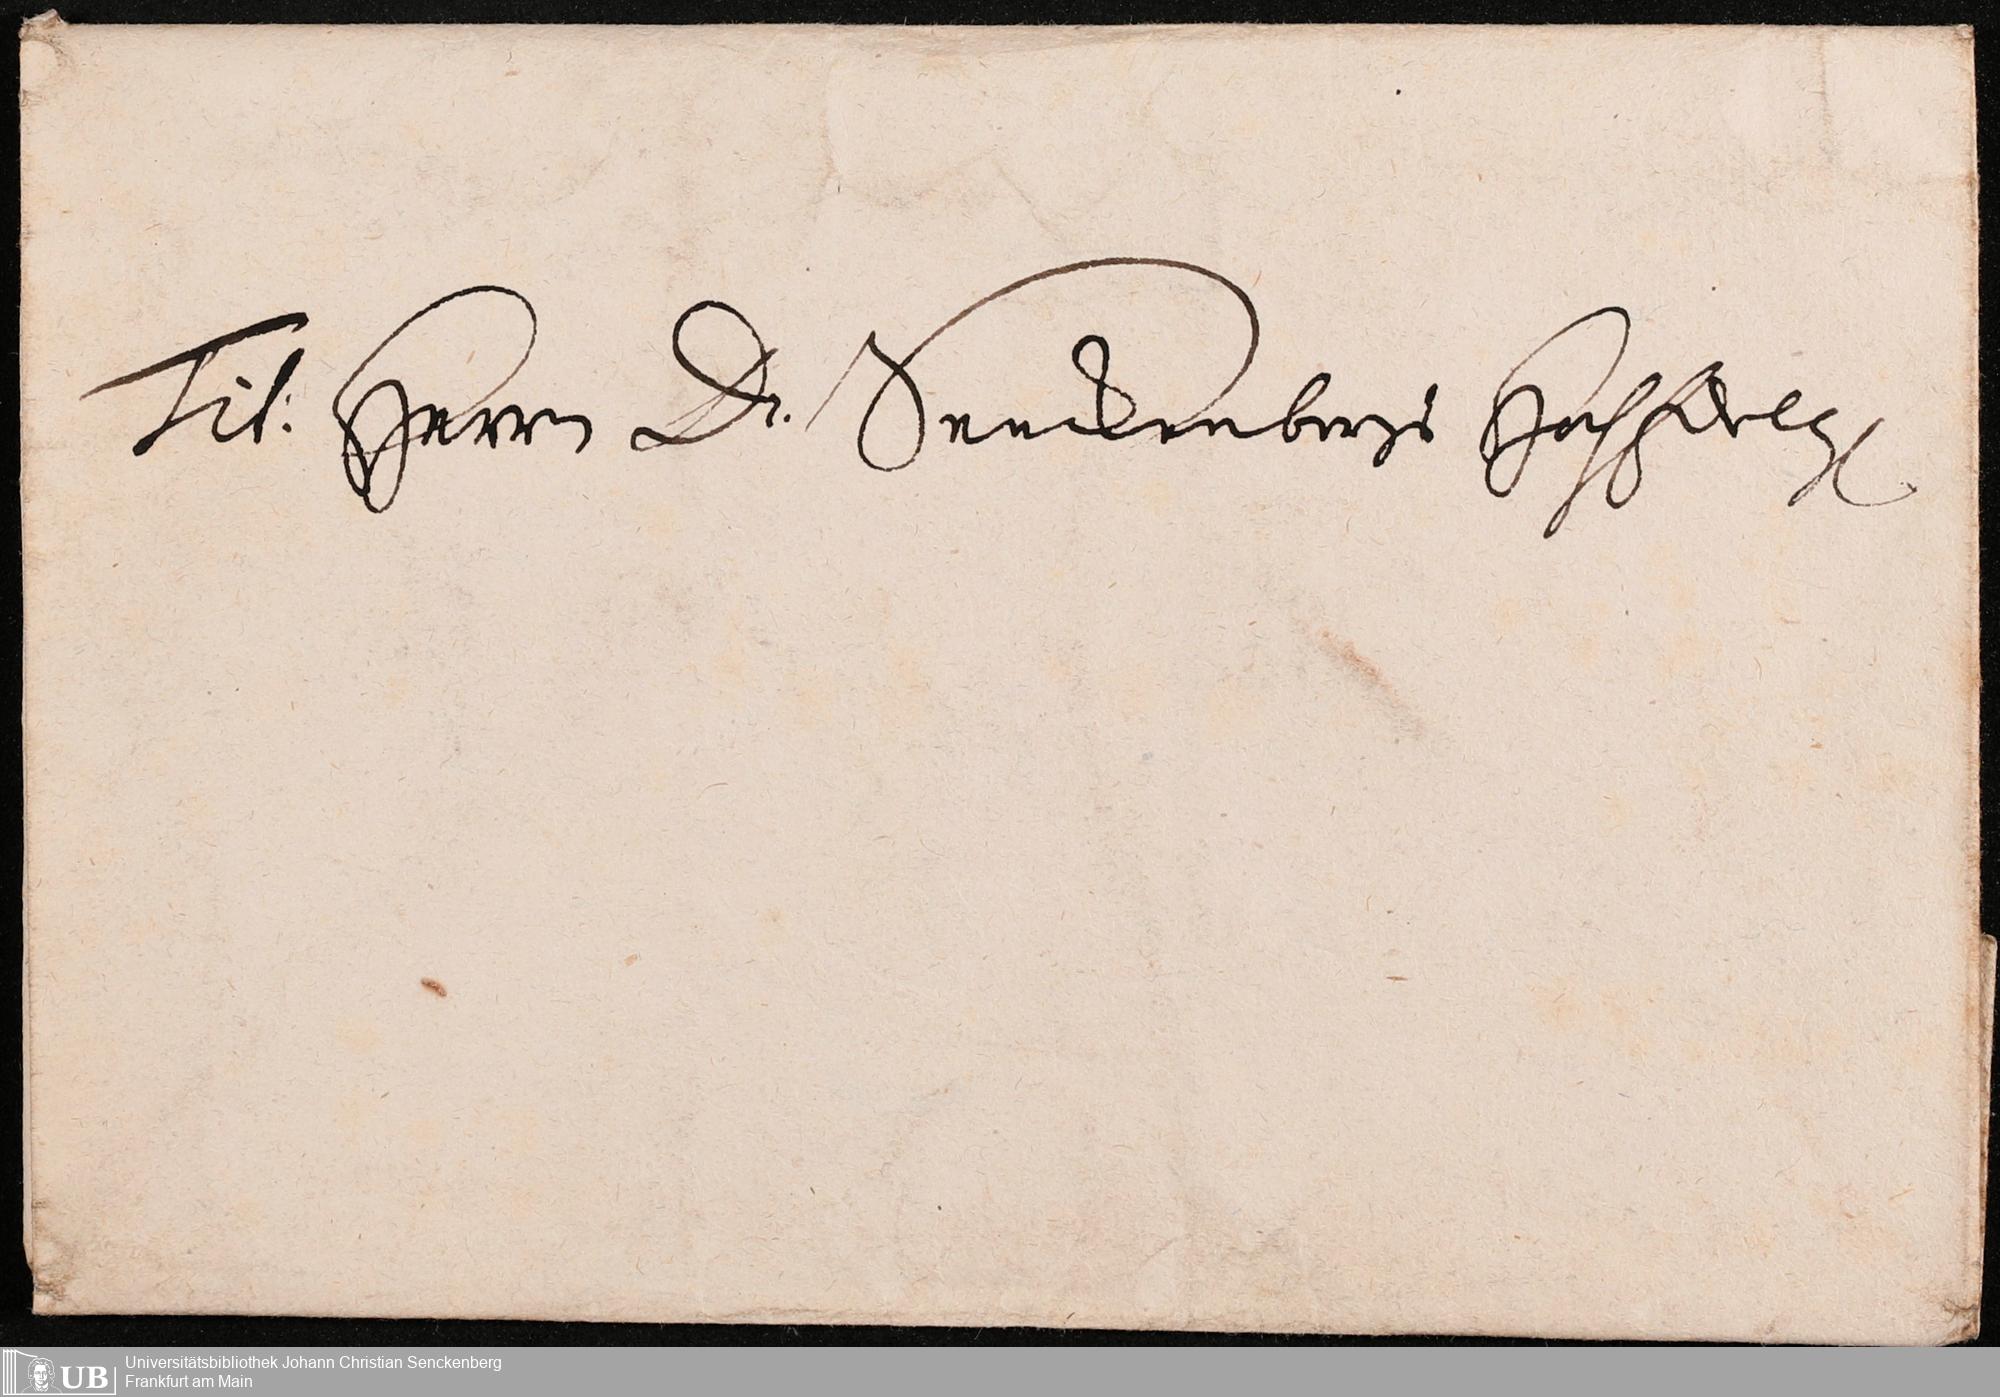 Tit: Herrn Dr. Senckenbergs
Universitätsbibliothek Johann Christian Senckenberg
Frankfurt am Main
UB